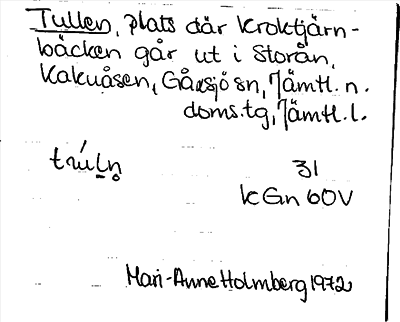 Tullen, plats där Kroktjärn-
bäcken går ut i Storån,
Kakuåsen, Gåxsjö sn, Jämtl. n.
doms.tg, Jämtl. l.
31
kGn 60V
Mari-Anne Holmberg 1972